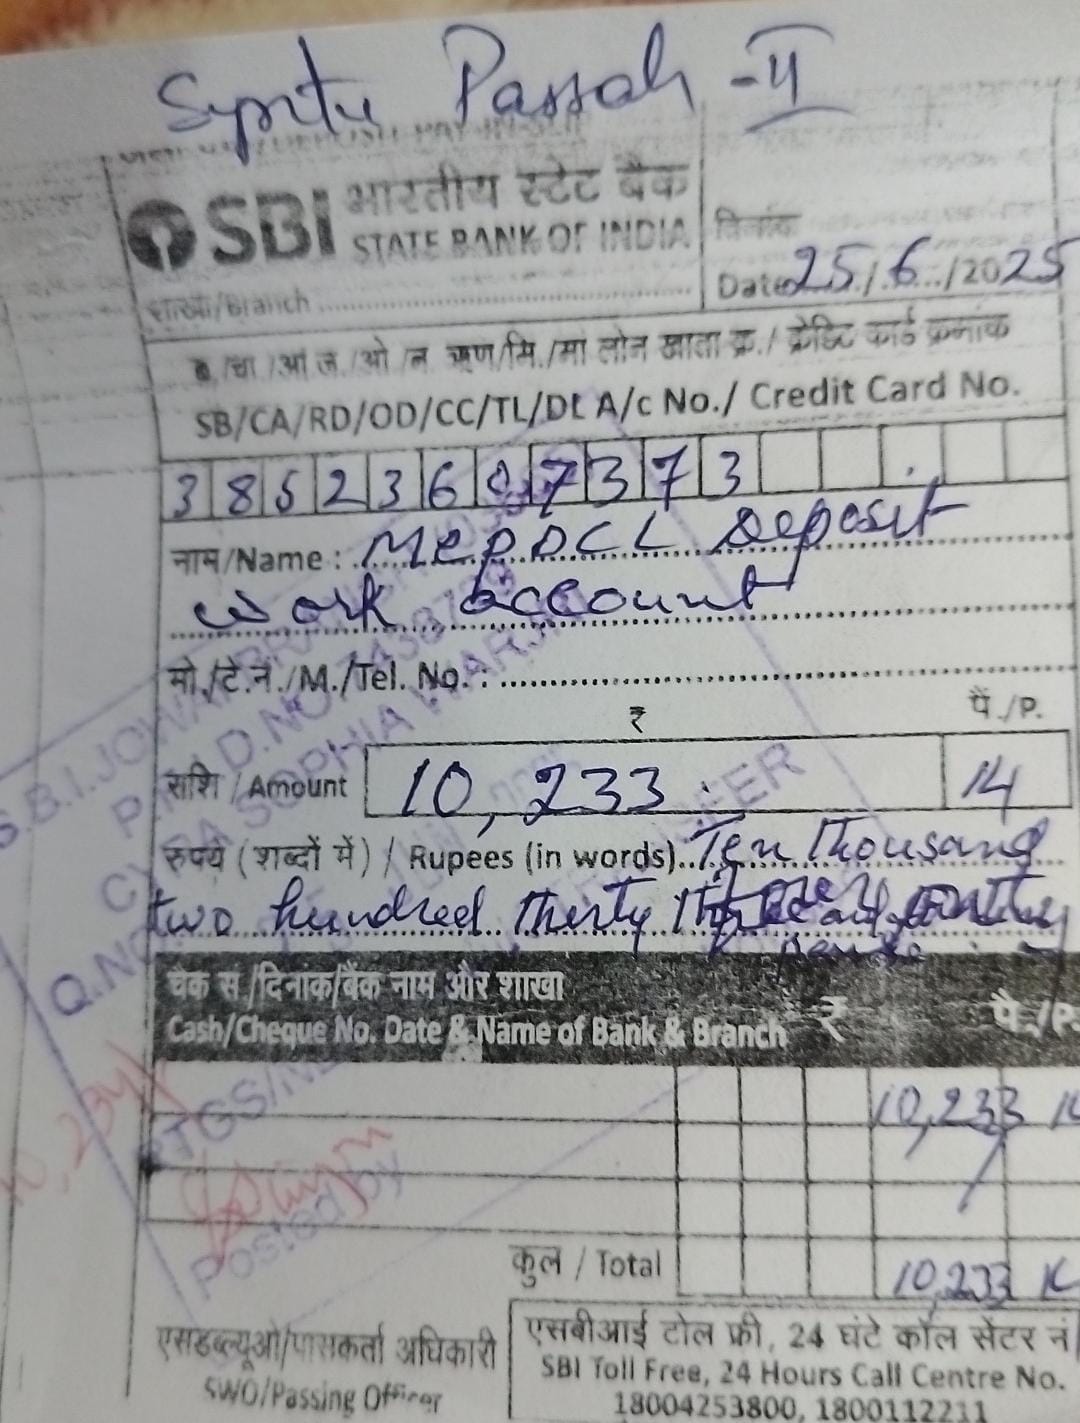 Syntu Passah - II
SBI भारतीय स्टेट बैंक
STATE BANK OF INDIA
शाखा/Branch
दिनांक
Date 25/6/2025
ब /चा /आ ज /ओ /न ऋण/मि./मां लोन खाता क्र./ क्रेडिट कार्ड क्रमांक
SB/CA/RD/OD/CC/TL/DL A/c No./ Credit Card No.
38523607373
नाम/Name : MePDCL Deposit
work account
मो./टे.नं./M./Tel. No. :
₹ पै./P.
राशि / Amount 10,233 14
रुपये (शब्दों में) / Rupees (in words) Ten Thousand
two hundred Thirty Three and
चेक स /दिनांक/बैंक नाम और शाखा ₹ पै./P.
Cash/Cheque No. Date & Name of Bank & Branch
10,233 14
कुल / Total 10,233 14
Posted by
एसडब्ल्यूओ/पासकर्ता अधिकारी
SWO/Passing Officer
एसबीआई टोल फ्री, 24 घंटे कॉल सेंटर नं
SBI Toll Free, 24 Hours Call Centre No.
18004253800, 1800112211